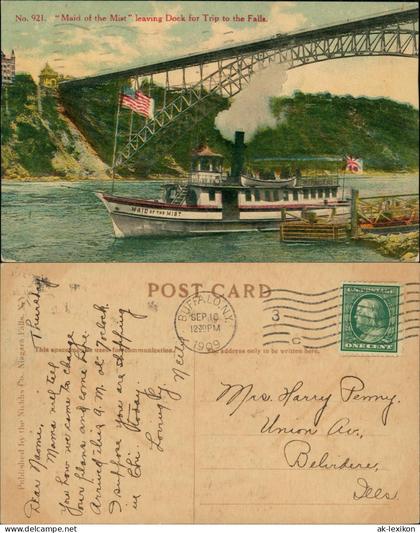 No. 921. "Maid of the Mist" leaving Dock for Trip to the Falls.
MAID OF THE MIST
POST CARD
This space may be used for communication.
The address only to be written here.
Published by the Niagara Falls, N.Y.
BUFFALO, N.Y.
SEP 16
12 30 PM
1909
3
C
U.S. POSTAGE
ONE CENT
Thursday
Dear Naomi,
Mama will tell
you how we came to change
our plans and come here.
Arrived this A.M. at 7 o'clock.
I suppose you are shopping
in Chi. today.
Lovingly,
Nelly
Mrs. Harry Penny.
Union Av.,
Belvidere,
Ills.
www.ansichtskarten-lexikon.de
ak-lexikon.de